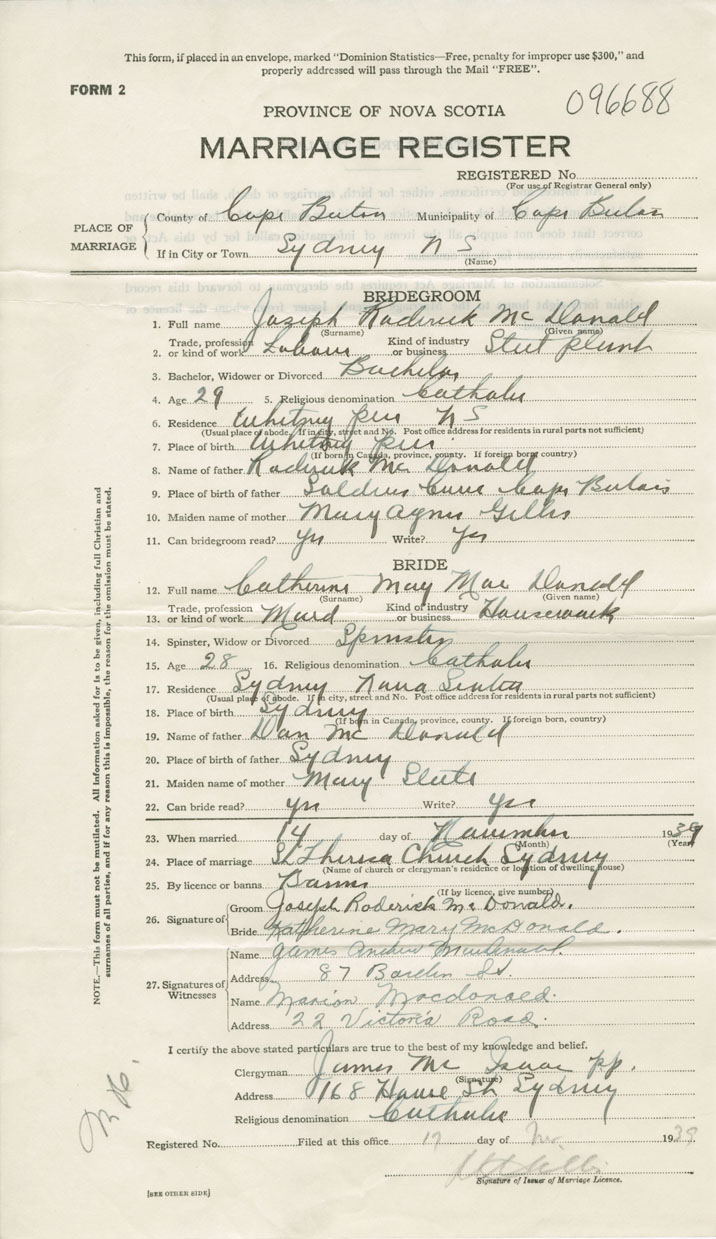 This form, if placed in an envelope, marked "Dominion Statistics—Free, penalty for improper use $300," and
properly addressed will pass through the Mail "FREE".
FORM 2
096688
PROVINCE OF NOVA SCOTIA
MARRIAGE REGISTER
REGISTERED No.
(For use of Registrar General only)
PLACE OF MARRIAGE
County of Cape Breton Municipality of Cape Breton
If in City or Town Sydney N S
(Name)
BRIDEGROOM
1. Full name Joseph Roderick Mc Donald
(Surname) (Given name)
2. Trade, profession or kind of work Labour Kind of industry or business Steel plant
3. Bachelor, Widower or Divorced Bachelor
4. Age 29 5. Religious denomination Catholic
6. Residence Whitney Pier N S
(Usual place of abode. If in city, street and No. Post office address for residents in rural parts not sufficient)
7. Place of birth Whitney Pier
(If born in Canada, province, county. If foreign born, country)
8. Name of father Roderick Mc Donald
9. Place of birth of father Soldiers Cove Cape Breton
10. Maiden name of mother Mary Agnes Gillis
11. Can bridegroom read? Yes Write? Yes
BRIDE
12. Full name Catherine May Mac Donald
(Surname) (Given name)
13. Trade, profession or kind of work Maid Kind of industry or business Housework
14. Spinster, Widow or Divorced Spinster
15. Age 28 16. Religious denomination Catholic
17. Residence Sydney Nova Scotia
(Usual place of abode. If in city, street and No. Post office address for residents in rural parts not sufficient)
18. Place of birth Sydney
(If born in Canada, province, county. If foreign born, country)
19. Name of father Dan Mc Donald
20. Place of birth of father Sydney
21. Maiden name of mother Mary
22. Can bride read? yes Write? Yes
23. When married 14 day of November 1939
(Month) (Year)
24. Place of marriage St Theresa Church Sydney
(Name of church or clergyman's residence or location of dwelling house)
25. By licence or banns Banns
(If by licence, give number)
26. Signature of
Groom Joseph Roderick McDonald.
Bride Katherine Mary McDonald.
27. Signatures of Witnesses
Name James Andrew
Address 87 St.
Name Marion Macdonald.
Address 22 Victoria Road.
I certify the above stated particulars are true to the best of my knowledge and belief.
Clergyman James Mc Isaac pp.
(Signature)
Address 168 St Sydney
Religious denomination Catholic
Registered No. Filed at this office 17 day of Nov 1939
Signature of Issuer of Marriage Licence.
[SEE OTHER SIDE]
NOTE.—This form must not be mutilated. All information asked for is to be given, including full Christian and
surnames of all parties, and if for any reason this is impossible, the reason for the omission must be stated.